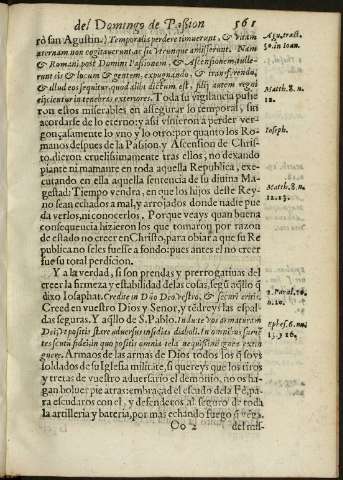 del Domingo de Passion 561
rò san Agustin.) Temporalia perdere timuerunt, & vitam
æternam non cogitauerunt, ac sic vtrunque amisserunt. Nam
& Romani post Domini Passionem, & Ascensionem, tulle-
runt eis & locum & gentem, expugnando, & transferendo,
& illud eos sequitur, quod alibi dictum est, filij autem regni
eijcientur in tenebras exteriores. Toda su vigilancia pusie
ron ellos miserables en assegurar lo temporal, sin
acordarse de lo eterno; y assi vinieron à perder ver-
gonçosamente lo vno y lo otro: por quanto los Ro-
manos despues de la Passion, y Ascension de Chris-
to, dieron cruelissimamente tras ellos; no dexando
piante ni mamante en toda aquella Republica, exe-
cutando en ella aquella sentencia de su diuina Ma-
gestad: Tiempo vendra, en que los hijos deste Rey-
no sean echados a mal, y arrojados donde nadie pue
da verlos, ni conocerlos. Porque veays quan buena
consequencia hizieron los que tomaron por razon
de estado no creer en Christo, para obiar a que su Re
publica no se les fuesse a fondo: pues antes el no creer
fue su total perdicion.
Y a la verdad, si son prendas y prerrogatiuas del
creer la firmeza y estabilidad de las cosas, segũ aq̃llo q̃
dixo Iosaphat. Credite in Dño Deo vestro, & securi eritis.
Creed en vuestro Dios y Señor, y tẽdreys las espal-
das seguras. Y aq̃llo de S. Pablo. Induite vos armaturam
Dei, vt positis stare aduersus insidias diaboli. In omnibus sumẽ
tes scutũ fidei, in quo positis omnia tela nequissimi ignea extin
guere. Armaos de las armas de Dios todos los q̃ soys
soldados de su Iglesia militate, si quereys que los tiros
y tretas de vuestro aduersario el demonio, no os ha-
gan boluer pie atras: embraçad el escudo de la Fè, pa-
ra escudaros con el, y defenderos al seguro de toda
la artilleria y bateria, por mas echando fuego q̃ vẽga.
Oo 2 del mis-
Aug. tract.
50. in Ioan.
Matth. 8. n.
12.
Ioseph.
Matth. 8. n.
12. 13.
2. Paral. 20.
n. 20.
Ephes. 6. nu.
13. y 16.